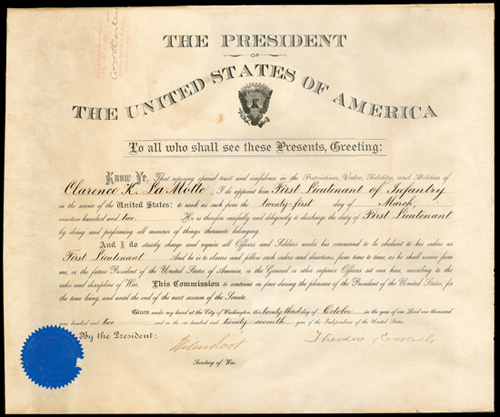 THE PRESIDENT
OF
THE UNITED STATES OF AMERICA
To all who shall see these Presents, Greeting:
Know Ye, That reposing special trust and confidence in the Patriotism, Valor, Fidelity, and Abilities of
Clarence K. La Motte I do appoint him First Lieutenant of Infantry
in the service of the United States: to rank as such from the twenty-first day of March,
nineteen hundred and two. He is therefore carefully and diligently to discharge the duty of First Lieutenant
by doing and performing all manner of things thereunto belonging.
And I do strictly charge and require all Officers and Soldiers under his command to be obedient to his orders as
First Lieutenant And he is to observe and follow such orders and directions, from time to time, as he shall receive from
me, or the future President of the United States of America, or the General or other superior Officers set over him, according to the
rules and discipline of War. This Commission to continue in force during the pleasure of the President of the United States, for
the time being, and until the end of the next session of the Senate.
Given under my hand at the City of Washington, this twenty-third day of October in the year of our Lord one thousand
nine hundred and two and in the one hundred and twenty seventh year of the Independence of the United States.
By the President:
Elihu Root
Theodore Roosevelt
Secretary of War.